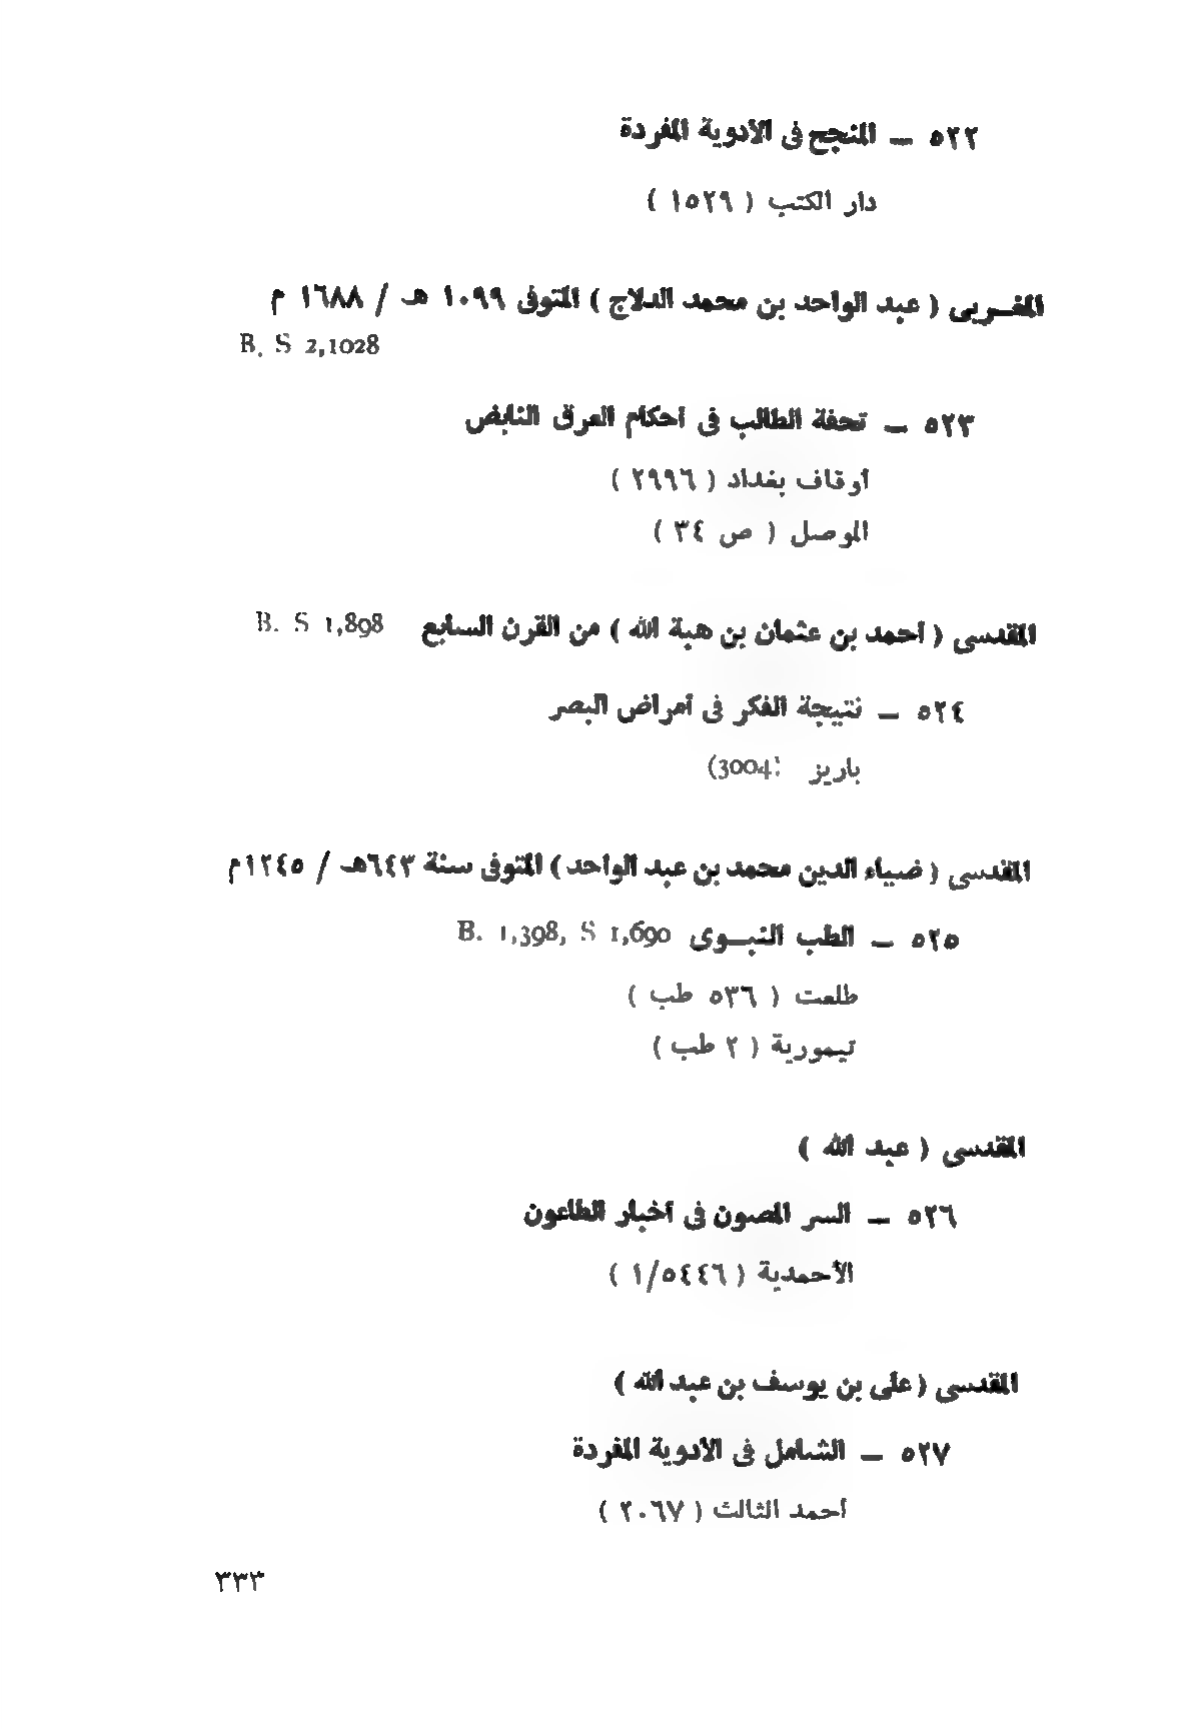 ٥٢٢ ــ المنجح فى الأدوية المفردة
دار الكتب ( ١٥٢٩ )
المغــربى ( عبد الواحد بن محمد الدلاج ) المتوفى ١٠٩٩ هـ / ١٦٨٨ م
B. S 2,1028
٥٢٣ ــ تحفة الطالب فى أحكام العرق النابض
أوقاف بغداد ( ٢٩٩٦ )
الموصل ( ص ٣٤ )
المقدسى ( أحمد بن عثمان بن هبة الله ) من القرن السابع B. S 1,898
٥٢٤ ــ نتيجة الفكر فى أمراض البصر
باريز (3004)
المقدسى ( ضياء الدين محمد بن عبد الواحد ) المتوفى سنة ٦٤٣هـ / ١٢٤٥م
٥٢٥ ــ الطب النبــوى B. 1,398, S 1,690
طلعت ( ٥٣٦ طب )
تيمورية ( ٢ طب )
المقدسى ( عبد الله )
٥٢٦ ــ السر المصون فى أخبار الطاعون
الأحمدية ( ١/٥٤٤٦ )
المقدسى ( على بن يوسف بن عبد الله )
٥٢٧ ــ الشامل فى الأدوية المفردة
أحمد الثالث ( ٢٠٦٧ )
٣٣٣